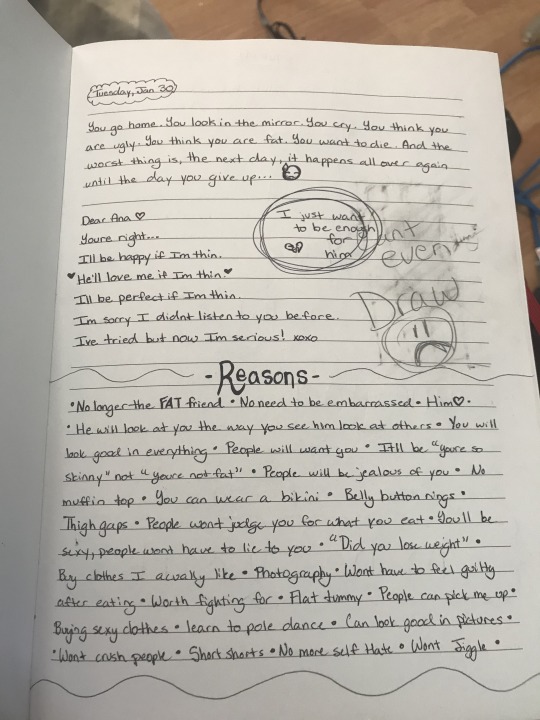 Tuesday, Jan 30
You go home. You look in the mirror. You cry. You think you
are ugly. You think you are fat. You want to die. And the
worst thing is, the next day, it happens all over again
until the day you give up...
Dear Ana
Youre right...
I'll be happy if Im thin.
He'll love me if Im thin
I'll be perfect if Im thin.
Im sorry I didnt listen to you before.
Ive tried but now Im serious! xoxo
I just want
to be enough
for
him
even
Draw
-Reasons-
•No longer the FAT friend • No need to be embarrassed • Him
• He will look at you the way you see him look at others • You will
look good in everything • People will want you • It'll be "youre so
skinny" not "youre not fat" • People will be jealous of you • No
muffin top • You can wear a bikini • Belly button rings •
Thigh gaps • People wont judge you for what you eat • You'll be
sexy, people wont have to lie to you • "Did you lose weight" •
Buy clothes I acually like • Photography • Wont have to feel guilty
after eating • Worth fighting for • Flat tummy • People can pick me up •
Buying sexy clothes • learn to pole dance • Can look good in pictures •
•Wont crush people • Short shorts • No more self Hate • Wont Jiggle •